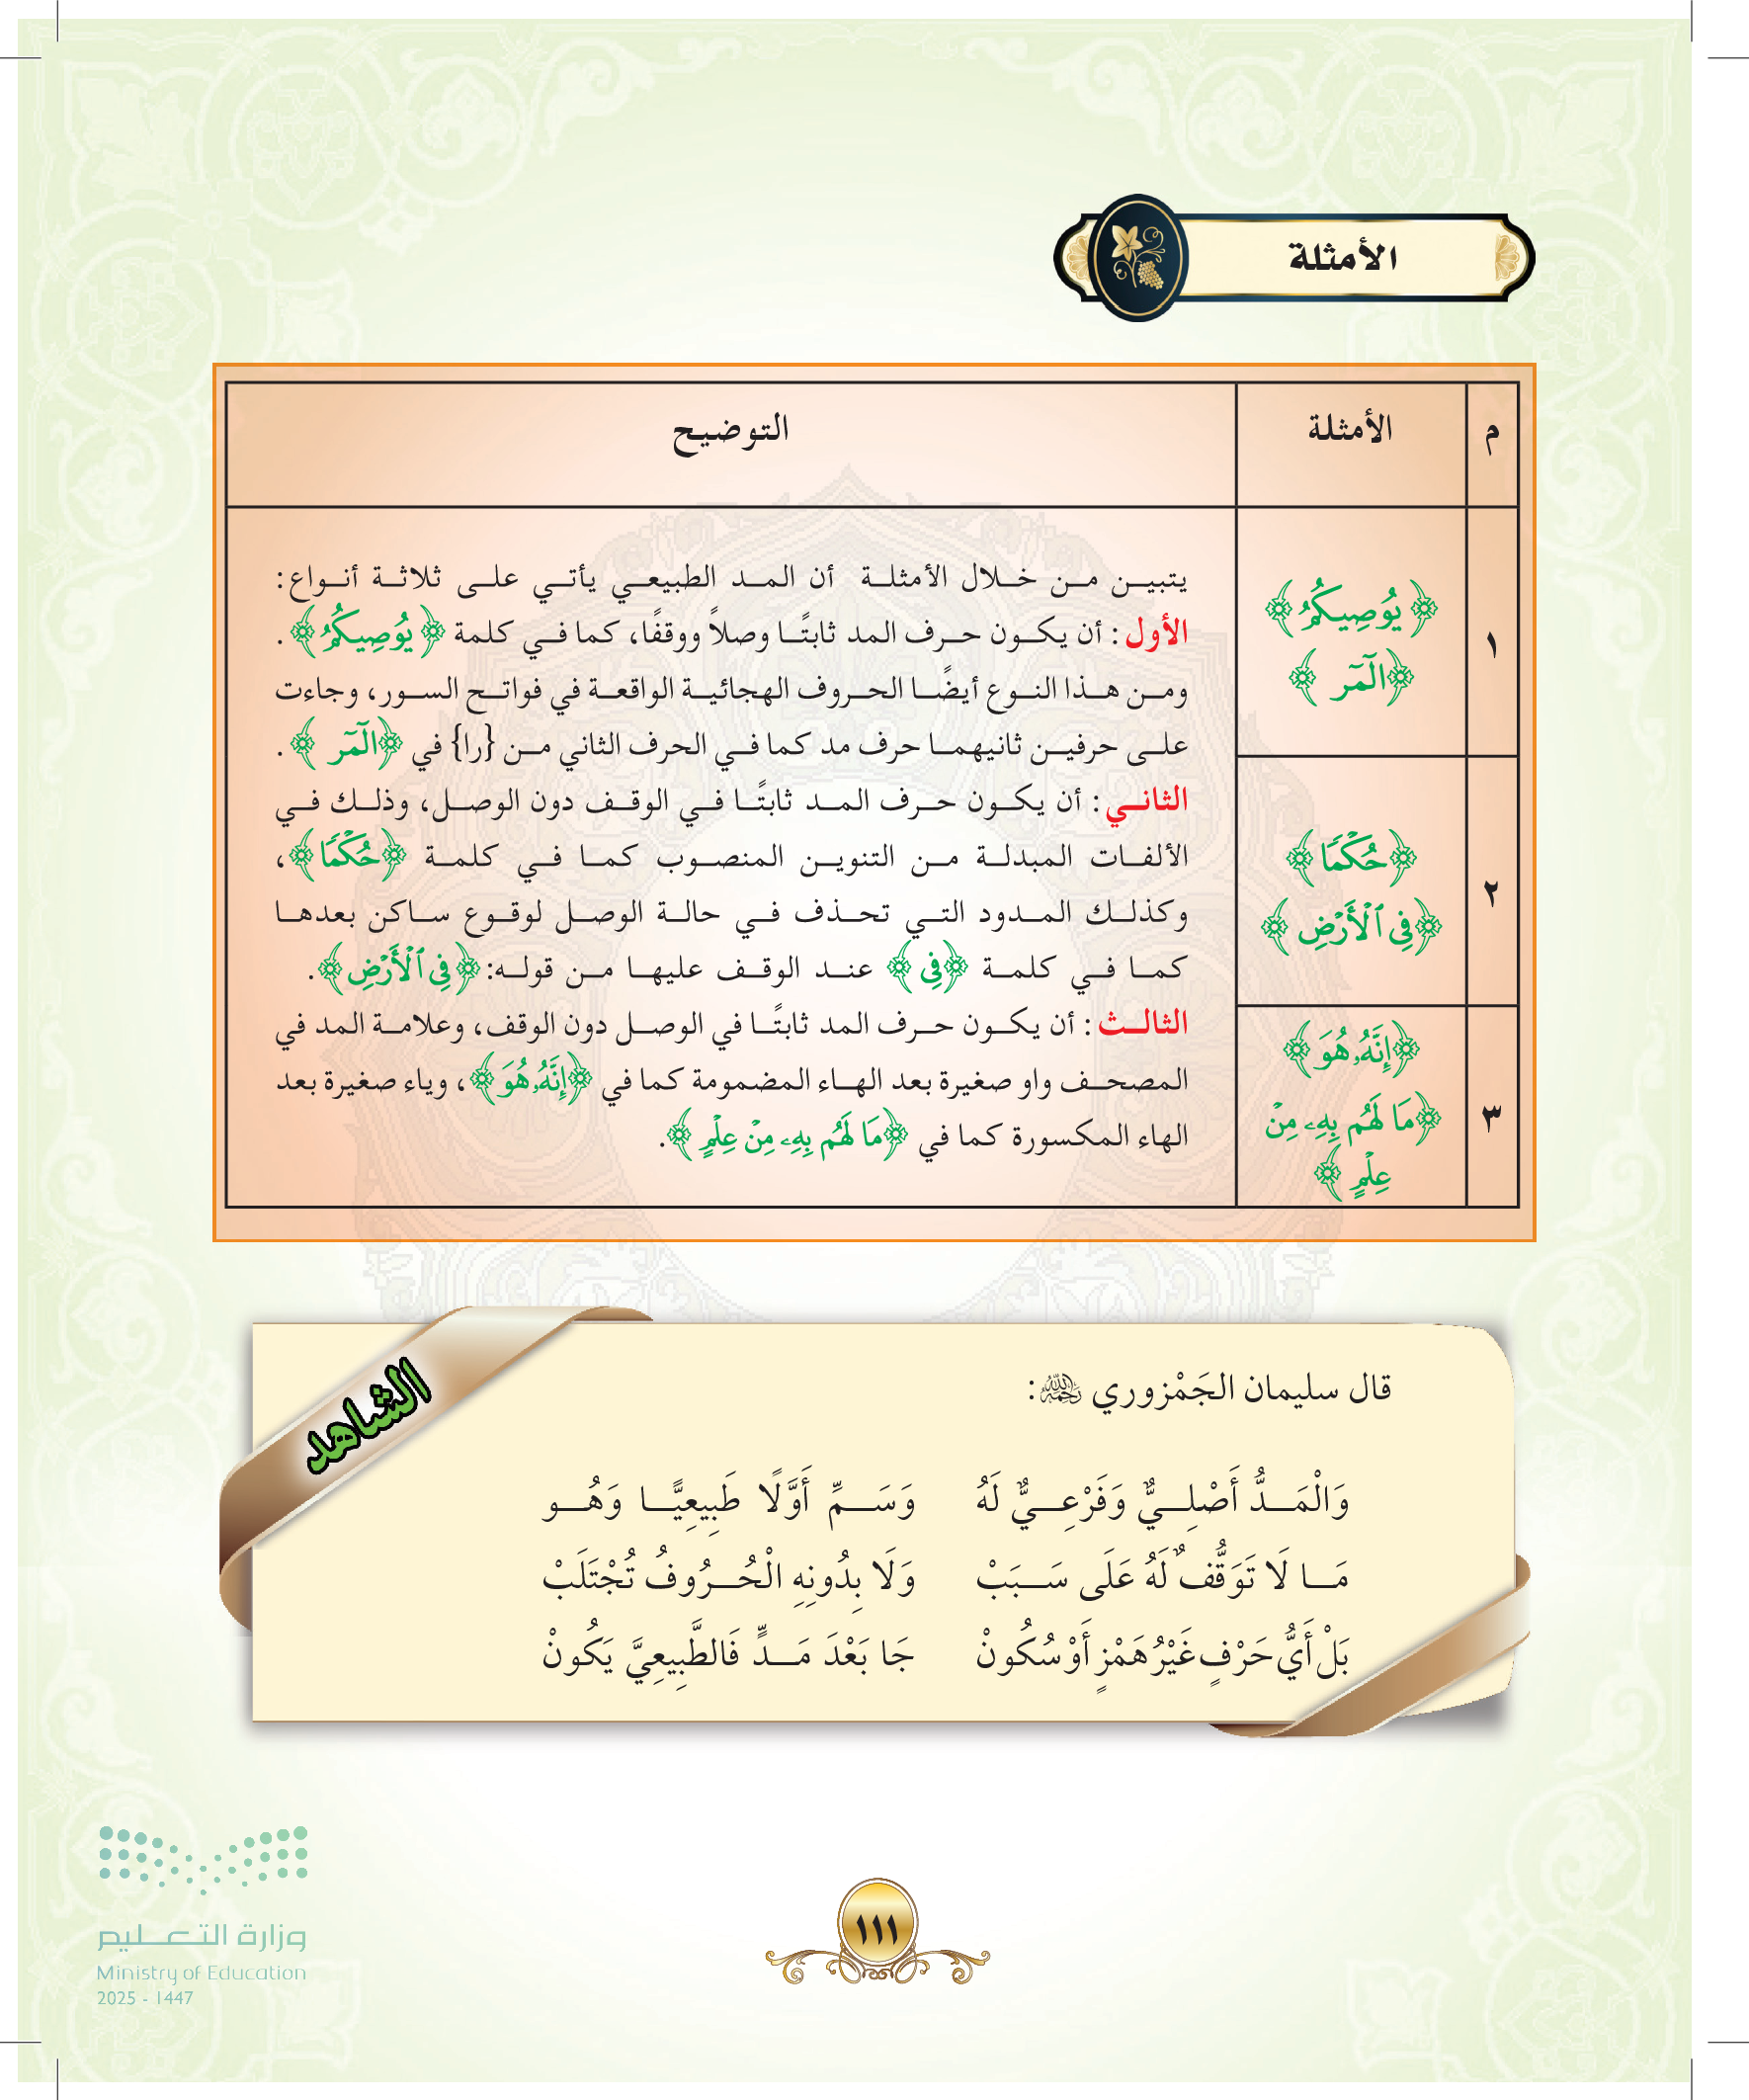 الأمثلة
م الأمثلة التوضيح
١
﴿يُوصِيكُمُ﴾
﴿الٓمٓر﴾
٢
﴿حُكْمًا﴾
﴿فِي ٱلْأَرْضِ﴾
٣
﴿إِنَّهُۥ هُوَ﴾
﴿مَا لَهُم بِهِۦ مِنْ
عِلْمٍ﴾
يتبين من خلال الأمثلة أن المد الطبيعي يأتي على ثلاثة أنواع:
الأول: أن يكون حرف المد ثابتًا وصلاً ووقفًا، كما في كلمة ﴿يُوصِيكُمُ﴾.
ومن هذا النوع أيضًا الحروف الهجائية الواقعة في فواتح السور، وجاءت
على حرفين ثانيهما حرف مد كما في الحرف الثاني من {را} في ﴿الٓمٓر﴾.
الثاني: أن يكون حرف المد ثابتًا في الوقف دون الوصل، وذلك في
الألفات المبدلة من التنوين المنصوب كما في كلمة ﴿حُكْمًا﴾،
وكذلك المدود التي تحذف في حالة الوصل لوقوع ساكن بعدها
كما في كلمة ﴿فِي﴾ عند الوقف عليها من قوله: ﴿فِي ٱلْأَرْضِ﴾.
الثالث: أن يكون حرف المد ثابتًا في الوصل دون الوقف، وعلامة المد في
المصحف واو صغيرة بعد الهاء المضمومة كما في ﴿إِنَّهُۥ هُوَ﴾، وياء صغيرة بعد
الهاء المكسورة كما في ﴿مَا لَهُم بِهِۦ مِنْ عِلْمٍ﴾.
الشاهد
قال سليمان الجَمْزوري رحمه الله:
وَالْمَدُّ أَصْلِيٌّ وَفَرْعِيٌّ لَهُ وَسَمِّ أَوَّلًا طَبِيعِيًّا وَهُو
مَا لَا تَوَقُّفٌ لَهُ عَلَى سَبَبْ وَلَا بِدُونِهِ الْحُرُوفُ تُجْتَلَبْ
بَلْ أَيُّ حَرْفٍ غَيْرُ هَمْزٍ أَوْ سُكُونْ جَا بَعْدَ مَدٍّ فَالطَّبِيعِيَّ يَكُونْ
وزارة التعليم
Ministry of Education
2025 - 1447
١١١